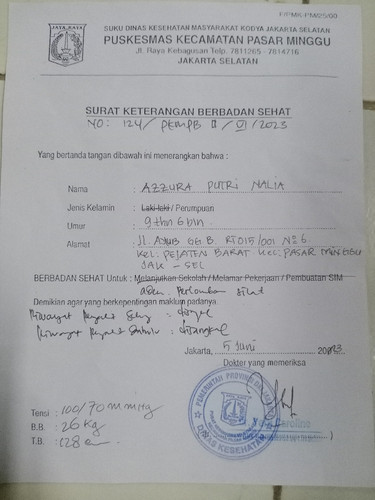 F/PMK-PM/25/00
JAYA RAYA
SUKU DINAS KESEHATAN MASYARAKAT KODYA JAKARTA SELATAN
PUSKESMAS KECAMATAN PASAR MINGGU
Jl. Raya Kebagusan Telp. 7811265 - 7814716
JAKARTA SELATAN
SURAT KETERANGAN BERBADAN SEHAT
NO: 124/ PKMPB / VI /2023
Yang bertanda tangan dibawah ini menerangkan bahwa :
Nama : AZZURA PUTRI NALIA
Jenis Kelamin : Laki-laki / Perumpuan
Umur : 9 thn 6 bln
Alamat : Jl. AJUB GG B RT015/001 No 6
KEL. PEJATEN BARAT KEC. PASAR MINGGU
JAK - SEL
BERBADAN SEHAT Untuk : Melanjutkan Sekolah / Melamar Pekerjaan / Pembuatan SIM
Perlombaan silat
Demikian agar yang berkepentingan maklum padanya
Riwayat
Riwayat
Jakarta, 5 Juni 2023
Dokter yang memeriksa
PEMERINTAH PROVINSI
DINAS KESEHATAN
Carolina
Tensi : 100/70 mmHg
B.B. : 26 kg
T.B. : 128 cm